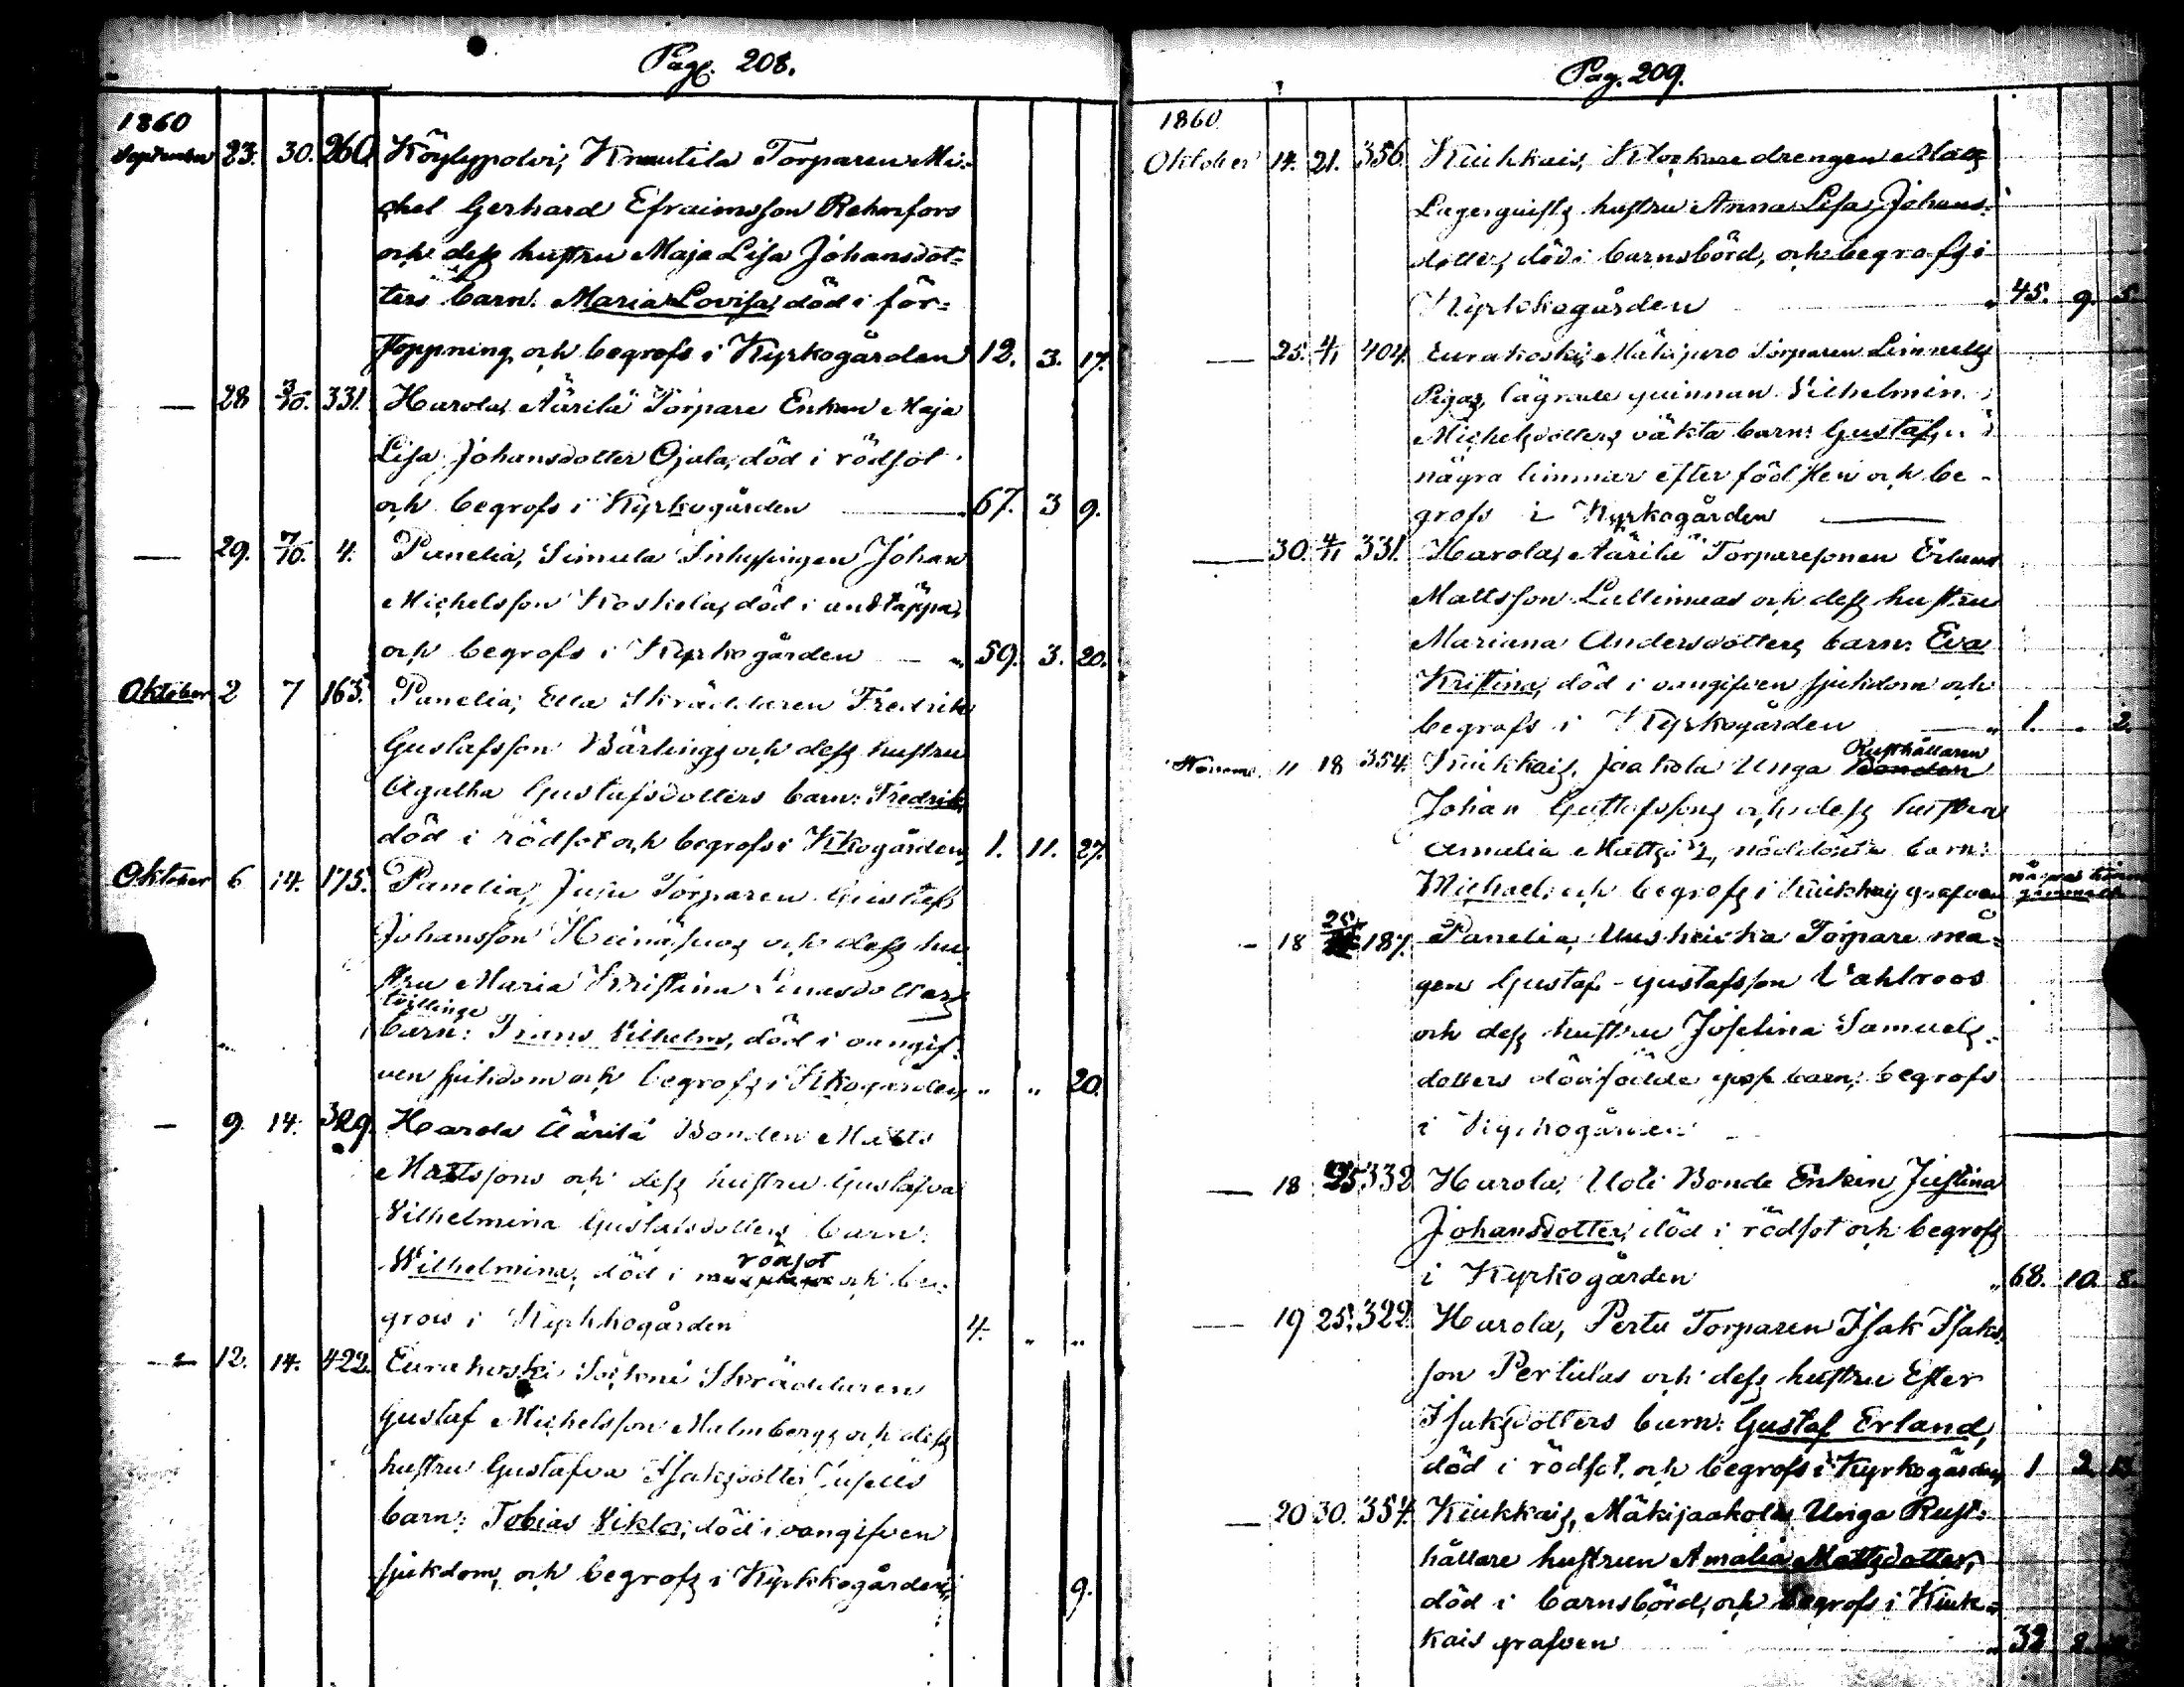 Pag. 208.
1860
September 23. 30. 260. Köylypolvi, Knuutila Torparen Mi-
chel Gerhard Efraimsson Rehnfors
och dess hustru Maja Lisa Johansdot-
ters barn: Maria Lovisa, död i för-
stoppning och begrofs i Kyrkogården 12. 3. 17.
— 28 3/10. 331. Harola, Äärilä Torpare Enkan Maja
Lisa Johansdotter Ojala, död i rödsot
och begrofs i Kyrkogården 67. 3 9.
— 29. 7/10. 4. Panelia, Simula Johan
Michelsson Koskela, död i andtäppa,
och begrofs i Kyrkogården — „ 59. 3. 20.
Oktober 2 7 163. Panelia, Ella Skräddaren Fredrik
Gustafsson Bärlings och dess hustru
Agatha Gustafsdotters barn: Fredrik,
död i rödsot och begrofs i Kkogården, 1. 11. 27.
Oktober 6 14. 175. Panelia, Jusu Torparen Gustaf
Johansson Heinäsuos och dess hu-
stru Maria Kristina Linasdotters
tvillinge
barn: Frans Vilhelm, död i oangif-
ven sjukdom och begrofs i Kkogården, „ „ 20.
— 9. 14. 329. Harola Äärilä Bonden Matts
Mattssons och dess hustru Gustafva
Vilhelmina Gustafsdotters barn:
rödsot
Wilhelmina, död i och be-
grofs i Kyrkkogården 4. „ „
— 12. 14. 422. Eurakoski Skräddaren
Gustaf Michelsson Malmbergs och dess
hustru Gustafva Isaksdotter
barn: Tobias Viktor, död i oangifven
sjukdom, och begrofs i Kyrkkogården, 9.
Pag. 209.
1860
Oktober 14. 21. 356. Kiukkais, Klockare drengen Matts
Lagerquists hustru Anna Lisa Johans-
dotter, död i barnsbörd, och begrofs i
Kyrkkogården „ 45. 9. 5.
— 25. 4/11 404. Eurakoski, Mäkipuro Torparen Linnells
Pigas, lägrade quinnan Vilhelmin
Michelsdotters oäkta barn: Gustaf,
några timmar efter födslen och be-
grofs i Kyrkogården —
— 30. 4/11 331. Harola, Äärilä Torparesonen Erland
Mattsson Lallinmaas och dess hustru
Mariana Andersdotters barn: Eva
Kristina, död i oangifven sjukdom och
begrofs i Kyrkogården — „ 1. „ 2.
11 18 354. Kiukkais, Jaakola Unga Bonden
Rusthållaren
Johan Gustafssons och dess hustru
Amalia Matts nöddöpta barn:
Michael, och begrofs i Kiukkais grafven några timmar
gammalt
— 18 25 187. Panelia, Uusknivka Torpare må-
gen Gustaf Gustafsson Vahlroos
och dess hustru Josefina Samuels-
dotters dödfödde barn, begrofs
i Kyrkogården —
— 18 25 332 Harola, Uoti Bonde Enkan Justina
Johansdotter, död i rödsot och begrofs
i Kyrkogården „ 68. 10. 8.
— 19 25. 322. Harola, Perttu Torparen Isak Isaks-
son Pertulas och dess hustru Ester
Isaksdotters barn: Gustaf Erland,
död i rödsot, och begrofs i Kyrkogården, 1 2.
— 20 30. 354. Kiukkais, Mäkijaakola Unga Rust-
hållare hustrun Amalia Mattsdotter,
död i barnsbörd, och begrofs i Kiuk-
kais grafven „ 32